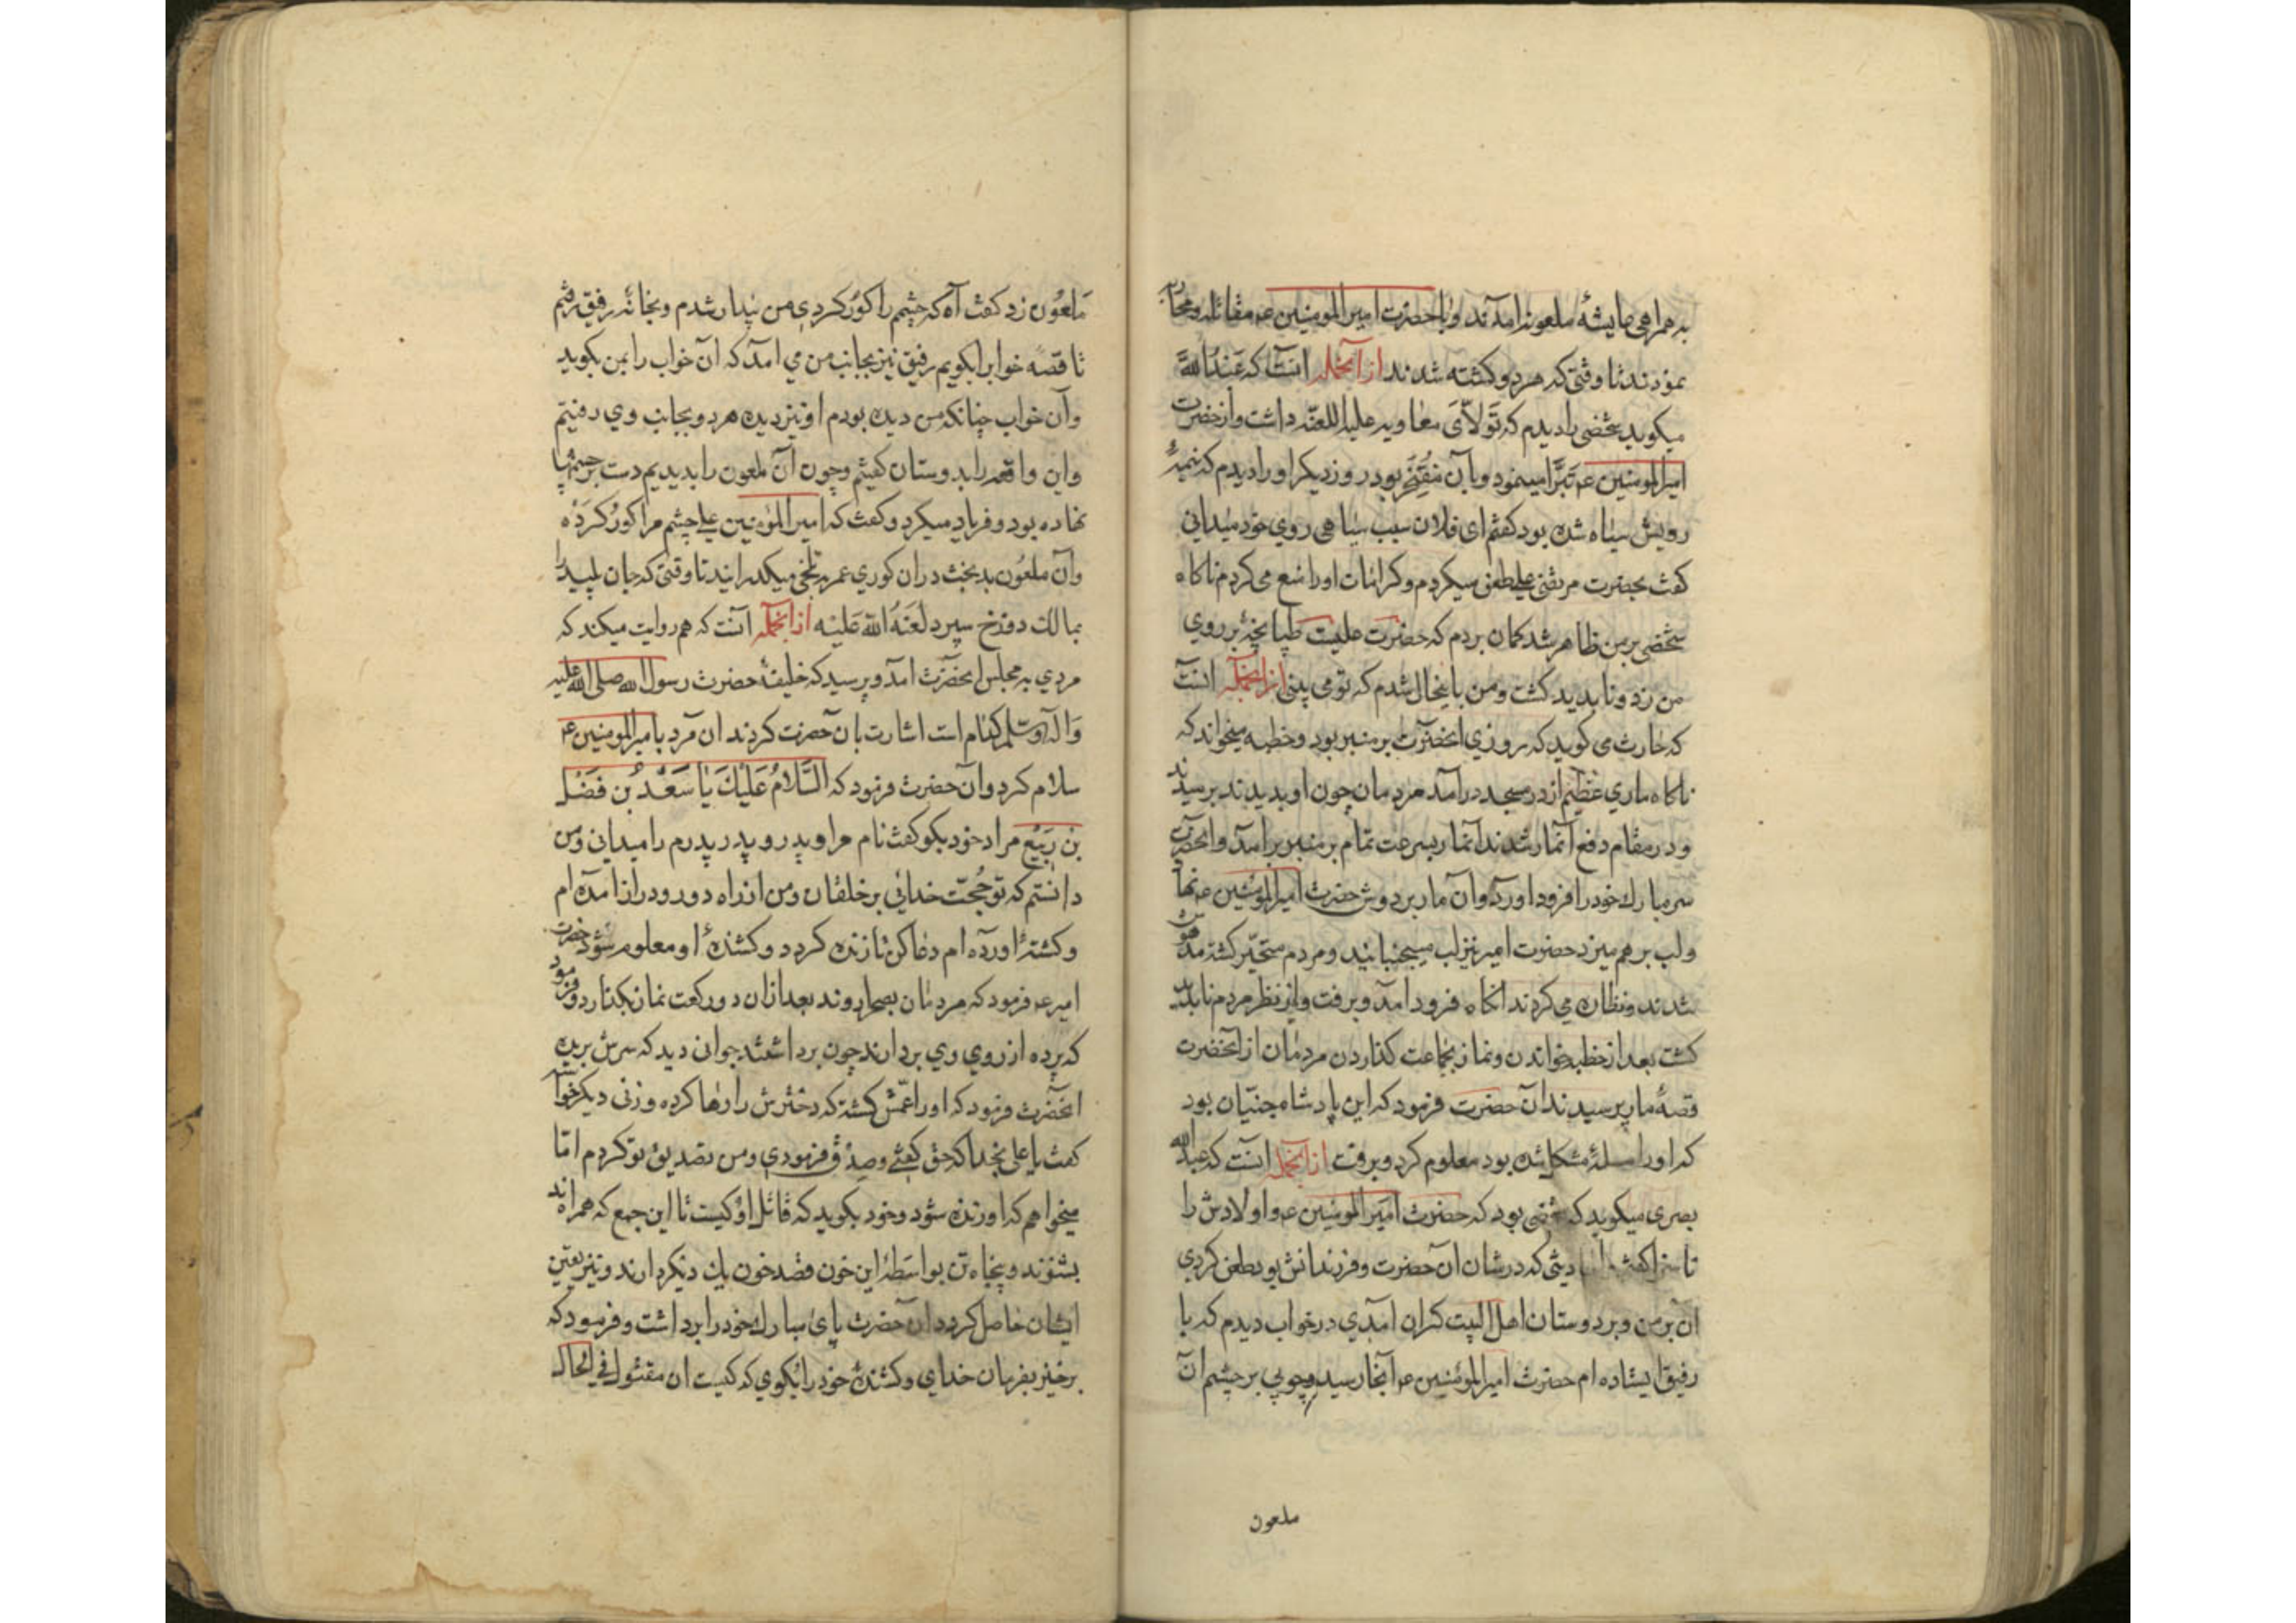 به همراهی عایشهٔ ملعونه امدند وبا حضرت امیر المومنین عم مقاتله ومحاربه
نمودند تا وقتی که هر دو کشته شدند از آنجمله انست که عَبْدُ اللهَّ
میکوید شخصی را دیدم که تَوَلاّیَ معٰاویه علیه اللعنّه داشت واز حضرت
امیر المومنین عم تَبَرّا مینمود وبآن مُفْتَخَر بود روز دیکر او را دیدم که نیمهٔ
رویش سیٰاه شده بود کفتم ای فلان سبب سیٰاهی روی خود میٰدانی
کفت بحضرت مرتضی علی طعن میکردم وکرامٰات او را منع می کردم ناکاه
شخصی بر من ظاهر شد کمان بردم که حضرت علیست طپانچهٔ بر روی
من زد وناپدید کشت ومن باینحال شدم که تو می بینی از انجمله انست
که حٰارث می کوید که روزی انحضرت بر منبر بود وخطبه میخواند که
ناکاه ماری عَظْیم از در مسجد درآمد مردمان چون او بدیدند برسیدند
ودر مقٰام دفع آنمار شدند آنمار بسرعت تمام بر منبر برامد وانحضرت
سر مبارك خود را فرود اورد وآن مار بر دوش حضرت امیر المؤمنین عم نهاد
ولب بر هم میزد حضرت امیر نیز لب میجنبانید ومردم متحیّر کشته مدهوش
شدند ونظاره می کردند انکاه فرود امد وبرفت واز نظر مردم ناپدید
کشت بعد از خطبه خواندن ونماز بجماعت کذاردن مردمٰان از آنحضرت
قصهٔ مار پرسیدند آن حضرت فرمود که این پادشاه جنیّان بود
که او را مسلهٔ مشکل شده بود معلوم کرد وبرفت از انجمله انست که عبد الله
بصری میکوید که شخصی بود که حضرت امَیر المومنین عم واولادش را
ناسزا کفتی دیثی که در شان آن حضرت وفرزندانش بود طعن کردی
آن بر من وبر دوستان اهل البیت کران امدی در خواب دیدم که با
رفیق ایستاده ام حضرت امیر المؤمنین عم آنجا رسید وچوبی بر چشم آن
ملعون
مَلعوُن زد کفت آه که چشم را کوُر کردی من بیدار شدم وبخانهٔ رفیق رفتم
تا قصهٔ خواب را بکویم رفیق نیز بجانب من می امد که ان خواب را بمن بکوید
وآن خواب چنانکه من دیده بودم او نیز دیده هر دو بجانب وی رفتیم
واین واقعه را بدوستان کفتیم وچون آن ملعون را بدیدیم دست بر چشمها
نهاده بود وفریاد میکرد وکفت که امیر المؤمنین علی چشم مرا کورُ کَردْه
وآن ملعوُن بدبخت در ان کوری عمر به تلخی میکذرایند تا وقتی که جان پلید را
بمالك دوزخ سپرد لَعَنَهُ اللّه عَلیْه از انجمله آنست که هم روایت میکند که
مردی به مجلس انحضرت امد وپرسید که خلیفهٔ حضرت رسول الله صلی الله علیه
وَآله وسّلم کدٰام است اشارت بان حضرت کردند ان مرد با امیر المومنین عم
سلام کرد وان حضرت فرمود که السَّلامُ عَلَیْكَ یٰا سَعْدُ بن فَضْل
بْن رَبیْع مراد خود بکو کفت نام مرا وپدر وپدر پدرم را میدانی ومن
دانستم که تو حُجّت خدائی بر خلقان ومن از راه دور ودراز امده ام
وکشتهٔ اورده ام دعٰا کن تا زنده کردد وکشندهٔ او معلوم شود حضرت
امیر عم فرمود که مردمٰان بصحرا روند بعد از ان دو رکعت نماز بکذارد وفرمود
که پرده از روی وی بردارند چون برداشتند جوانی دید که سرش بریده
انحضرت فرمود که او را عمّش کشته که دخترش را رها کرده وزنی دیکر خواسته
کفت یا علی بخدا که حق کفتی وصِدْق فرمودی ومن تصدیق تو کردم امّا
میخواهم که او زنده شود وخود بکوید که قاتل او کیست تا این جمع که همراه اند
بشنوند وپنجاه تن بواسَطهٔ این خون قصد خون یك دیکر دارند ونیز یقین
ایشان حٰاصل کردد ان حضرت پای مبارك خود را برداشت وفرمود که
برخیز بفرمان خدای وکشنده خود را بکوی که کیست ان مقتول فی الحال